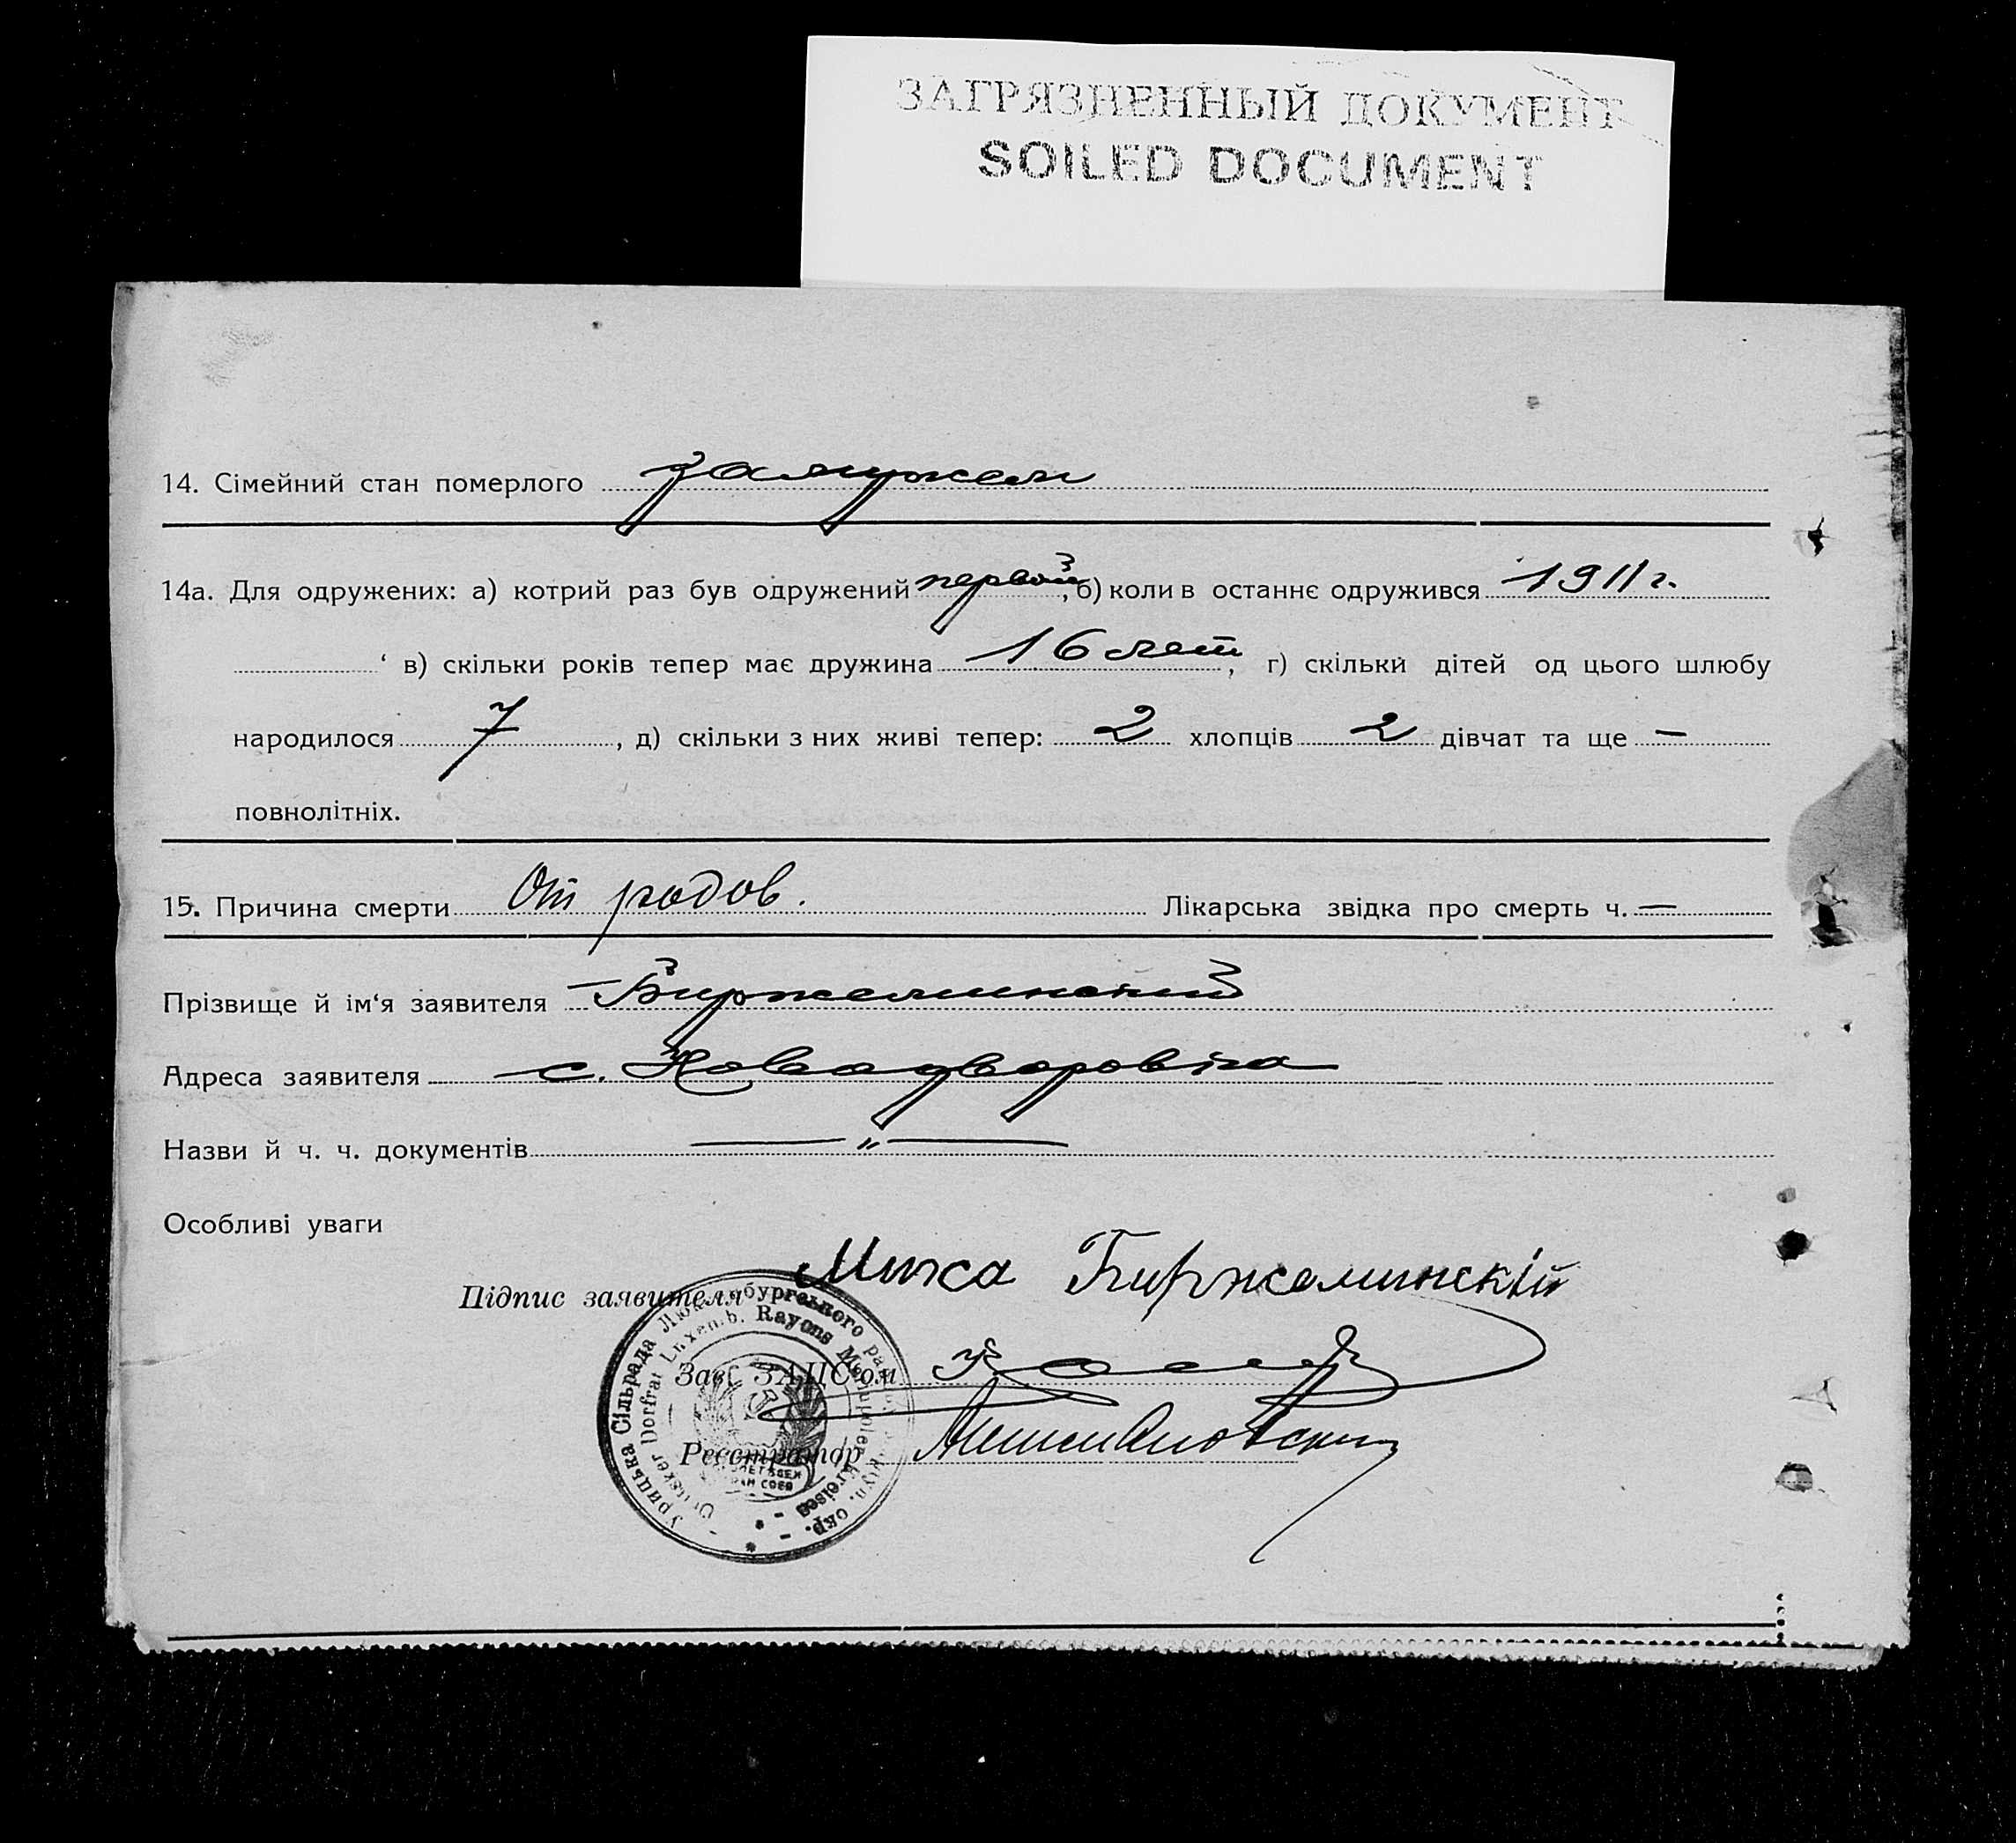 ЗАГРЯЗНЕННЫЙ ДОКУМЕНТ
SOILED DOCUMENT
14. Сімейний стан померлого замужем
14а. Для одружених: а) котрий раз був одружений первый, б) коли в останнє одружився 1911 г.
‘ в) скільки років тепер має дружина 16 лет, г) скільки дітей од цього шлюбу
народилося 7, д) скільки з них живі тепер: 2 хлопців 2 дівчат та ще —
повнолітніх.
15. Причина смерти От родов. Лікарська звідка про смерть ч. —
Прізвище й ім‘я заявителя Биржеминский
Адреса заявителя с. Новодворовка
Назви й ч. ч. документів — " —
Особливі уваги
Підпис заявителя Мика Биржеминскій
Зав. ЗАПС‘ом
Реєстратор
Урицька Сільрада Люксембургського
Dorfrat Luxemb. Rayons Kreises
окр.